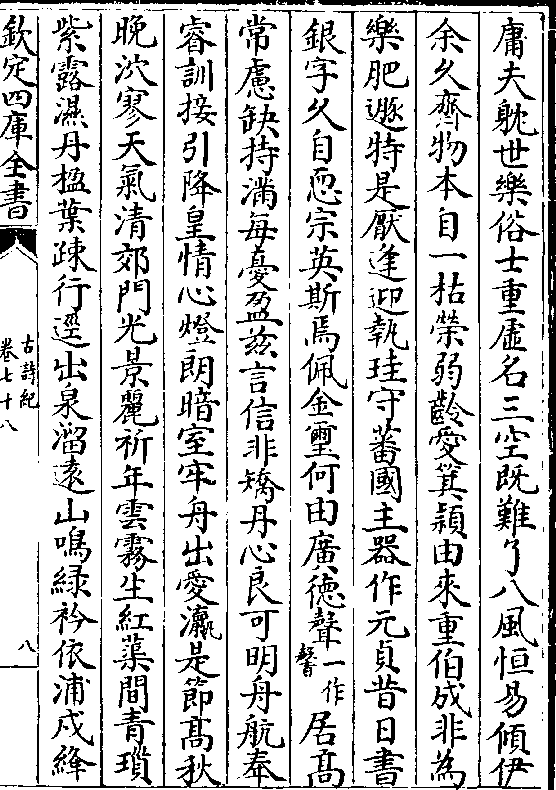 庸夫躭世樂俗士重虛名三空既難了八風恒易傾伊
余久齊物本自一枯榮弱齡愛箕潁由來重伯成非為
樂肥遯特是厭逢迎執珪守蕃國主器作元貞昔日書
銀字久自恧宗英斯焉佩金璽何由廣德聲一作馨居高
常慮缺持滿每憂盈兹言信非矯丹心良可明舟航奉
睿訓接引降皇情心燈朗暗室牢舟出愛瀛是節高秋
晚泬寥天氣清郊門光景麗祈年雲霧生紅蕖間青瑣
紫露濕丹楹葉疎行逕出泉溜遠山鳴緑衿依浦戍絳
欽定四庫全書
古詩紀
卷七十八
八